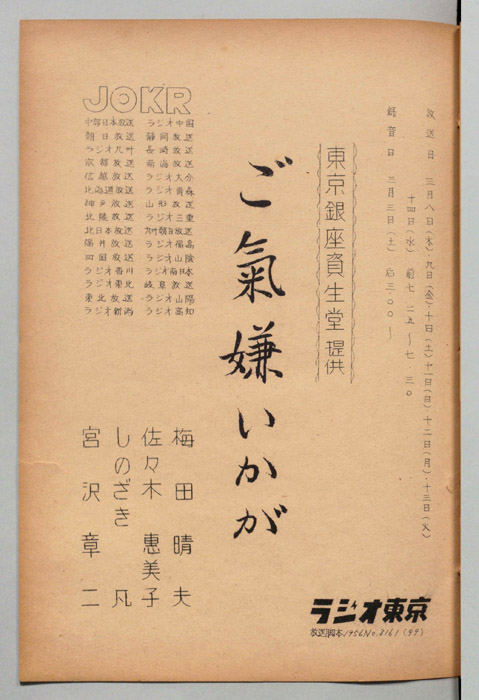 放送日 三月八日(木)九日(金)・十日(土)十一日(日)・十二日(月)・十三日(火)
十四日(水) 前七・二五〜七・三〇
録音日 三月三日(土) 后三・〇〇〜
東京銀座資生堂 提供
ご氣嫌いかが
梅田晴夫
佐々木恵美子
しのざき凡
宮沢章二
JOKR
中部日本放送 ラジオ中国
朝日放送 静岡放送
ラジオ九州 長崎放送
京都放送 南海放送
信越放送 ラジオ大分
北海道放送 ラジオ青森
神戸放送 山形放送
北陸放送 ラジオ三重
北日本放送
福井放送 ラジオ福島
四国放送 ラジオ山陰
ラジオ東京
放送脚本1956No.3161(99)